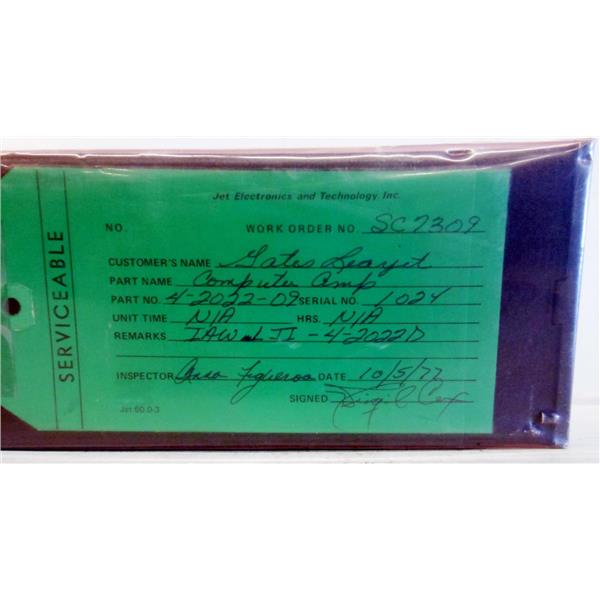 Jet Electronics and Technology, Inc.
NO. WORK ORDER NO. SC7309
SERVICEABLE
CUSTOMER'S NAME Gates Learjet
PART NAME Computer Amp
PART NO. 4-2022-09 SERIAL NO. 1024
UNIT TIME N/A HRS. N/A
REMARKS IAW LTI-4-2022D
INSPECTOR Figueroa DATE 10/5/77
SIGNED
Jet 60.0-3